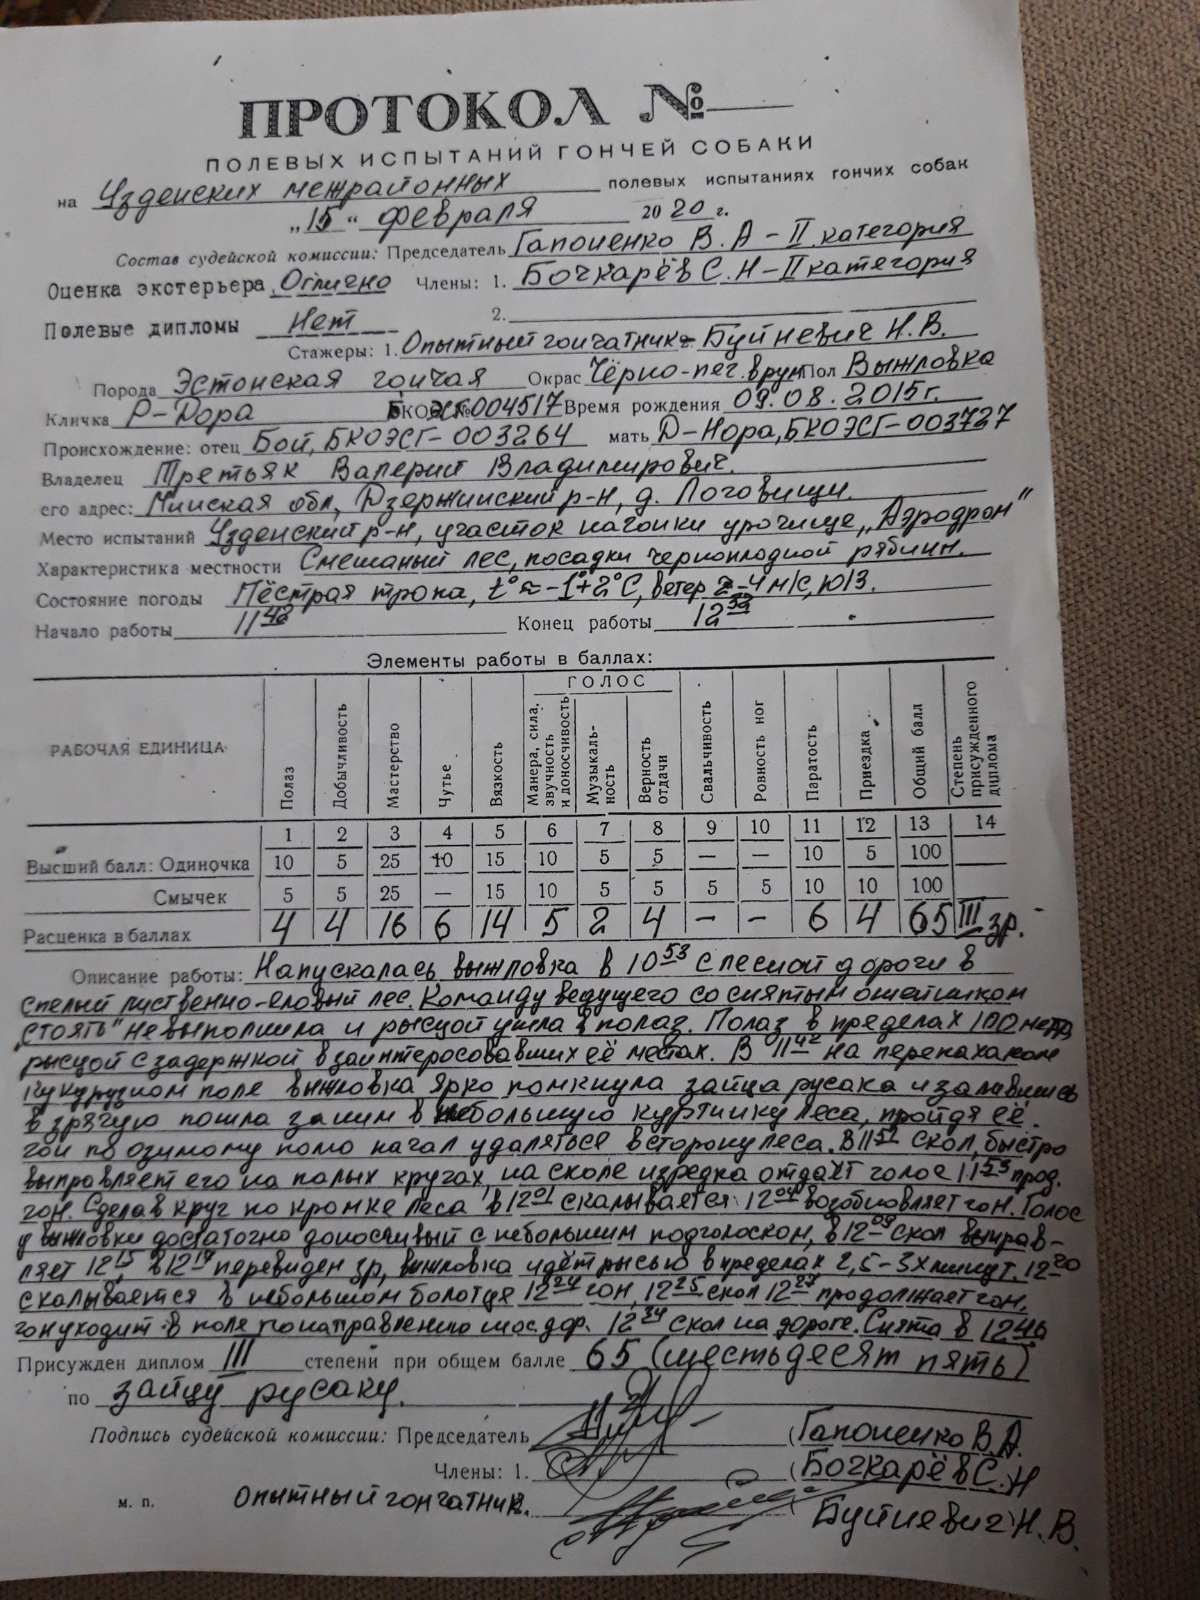 ПРОТОКОЛ №
ПОЛЕВЫХ ИСПЫТАНИЙ ГОНЧЕЙ СОБАКИ
на Узденских межрайонных полевых испытаниях гончих собак
„15“ февраля 2020 г.
Состав судейской комиссии: Председатель Гапоненко В. А – II категория
Оценка экстерьера Отлично Члены: 1. Бочкарёв С. Н – II категория
Полевые дипломы Нет 2.
Стажеры: 1. Опытный гончатник – Буйневич Н. В.
Порода Эстонская гончая Окрас Чёрно-пег. в рум Пол Выжловка
Кличка Р-Дора БКОЭСГ 004517 Время рождения 09.08.2015 г.
Происхождение: отец Бой, БКОЭСГ-003264 мать Д-Нора, БКОЭСГ-003727
Владелец Третьяк Валерий Владимирович.
его адрес: Минская обл, Дзержинский р-н, д. Логовищи.
Место испытаний Узденский р-н, участок нагонки урочище „Аэродром"
Характеристика местности Смешаный лес, посадки черноплодной рябины.
Состояние погоды Пёстрая тропа, t° ≈ -1°+2°С, ветер 2-4 м/с, ЮЗ.
Начало работы 11 42 Конец работы 12 34
Элементы работы в баллах:
РАБОЧАЯ ЕДИНИЦА Полаз Добычливость Мастерство Чутье Вязкость ГОЛОС Манера, сила, звучность и доносчивость Музыкальность Верность отдачи Свальчивость Ровность ног Паратость Приездка Общий балл Степень присужденного диплома
1 2 3 4 5 6 7 8 9 10 11 12 13 14
Высший балл: Одиночка 10 5 25 10 15 10 5 5 — — 10 5 100
Смычек 5 5 25 — 15 10 5 5 5 5 10 10 100
Расценка в баллах 4 4 16 6 14 5 2 4 – – 6 4 65 III зр.
Описание работы: Напускалась выжловка в 10 53 с лесной дороги в
спелый лиственно-еловый лес. Команду ведущего со снятым ошейником
„стоять" не выполнила и рысцой ушла в полаз. Полаз в пределах 100 метр,
рысцой с задержкой в заинтересовавших её местах. В 11 42 на перепаханом
кукурузном поле выжловка ярко помкнула зайца русака и залившись
в зрячую пошла за ним в небольшую куртинку леса, пройдя её
гон по озимому полю начал удаляться в сторону леса. В 11 51 скол, быстро
выправляет его на малых кругах, на сколе изредка отдаёт голос 11 53 прод.
гон. Сделав круг по кромке леса в 12 01 скалывается 12 04 возобновляет гон. Голос
у выжловки достаточно доносчивый с небольшим подголоском, в 12 09 скол выправ-
ляет 12 15, в 12 17 перевиден зр, выжловка идёт рысью в пределах 2,5-3х минут. 12 20
скалывается в небольшом болотце 12 24 гон, 12 25 скол 12 27 продолжает гон,
гон уходит в поле по направлению шос. дор. 12 34 скол на дороге. Снята в 12 46
Присужден диплом III степени при общем балле 65 (шестьдесят пять)
по зайцу русаку.
Подпись судейской комиссии: Председатель (Гапоненко В. А.
Члены: 1. (Бочкарёв С. Н
м. п. опытный гончатник. Буйневич Н. В.